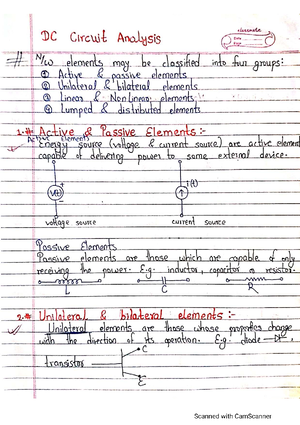 DC Circuit Analysis
classmate
Date
Page
# N/w elements may be classified into four groups:
① Active & passive elements
② Unilateral & bilateral elements
③ Linear & Nonlinear elements
④ Lumped & distributed elements
1.* Active & Passive Elements :-
Active elements
Energy source (voltage & current source) are active element
capable of delivering power to some external device.
V(t)
i(t)
voltage source
current source
Passive Elements
Passive elements are those which are capable of only
receiving the power. E.g. inductor, capacitor & resistor.
L
C
R
2.* Unilateral & bilateral elements :-
Unilateral elements are those whose properties change
with the direction of its operation. E.g. diode
transistor
C
E
Scanned with CamScanner